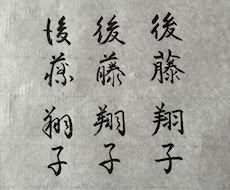 後藤翔子
後藤翔子
後藤翔子